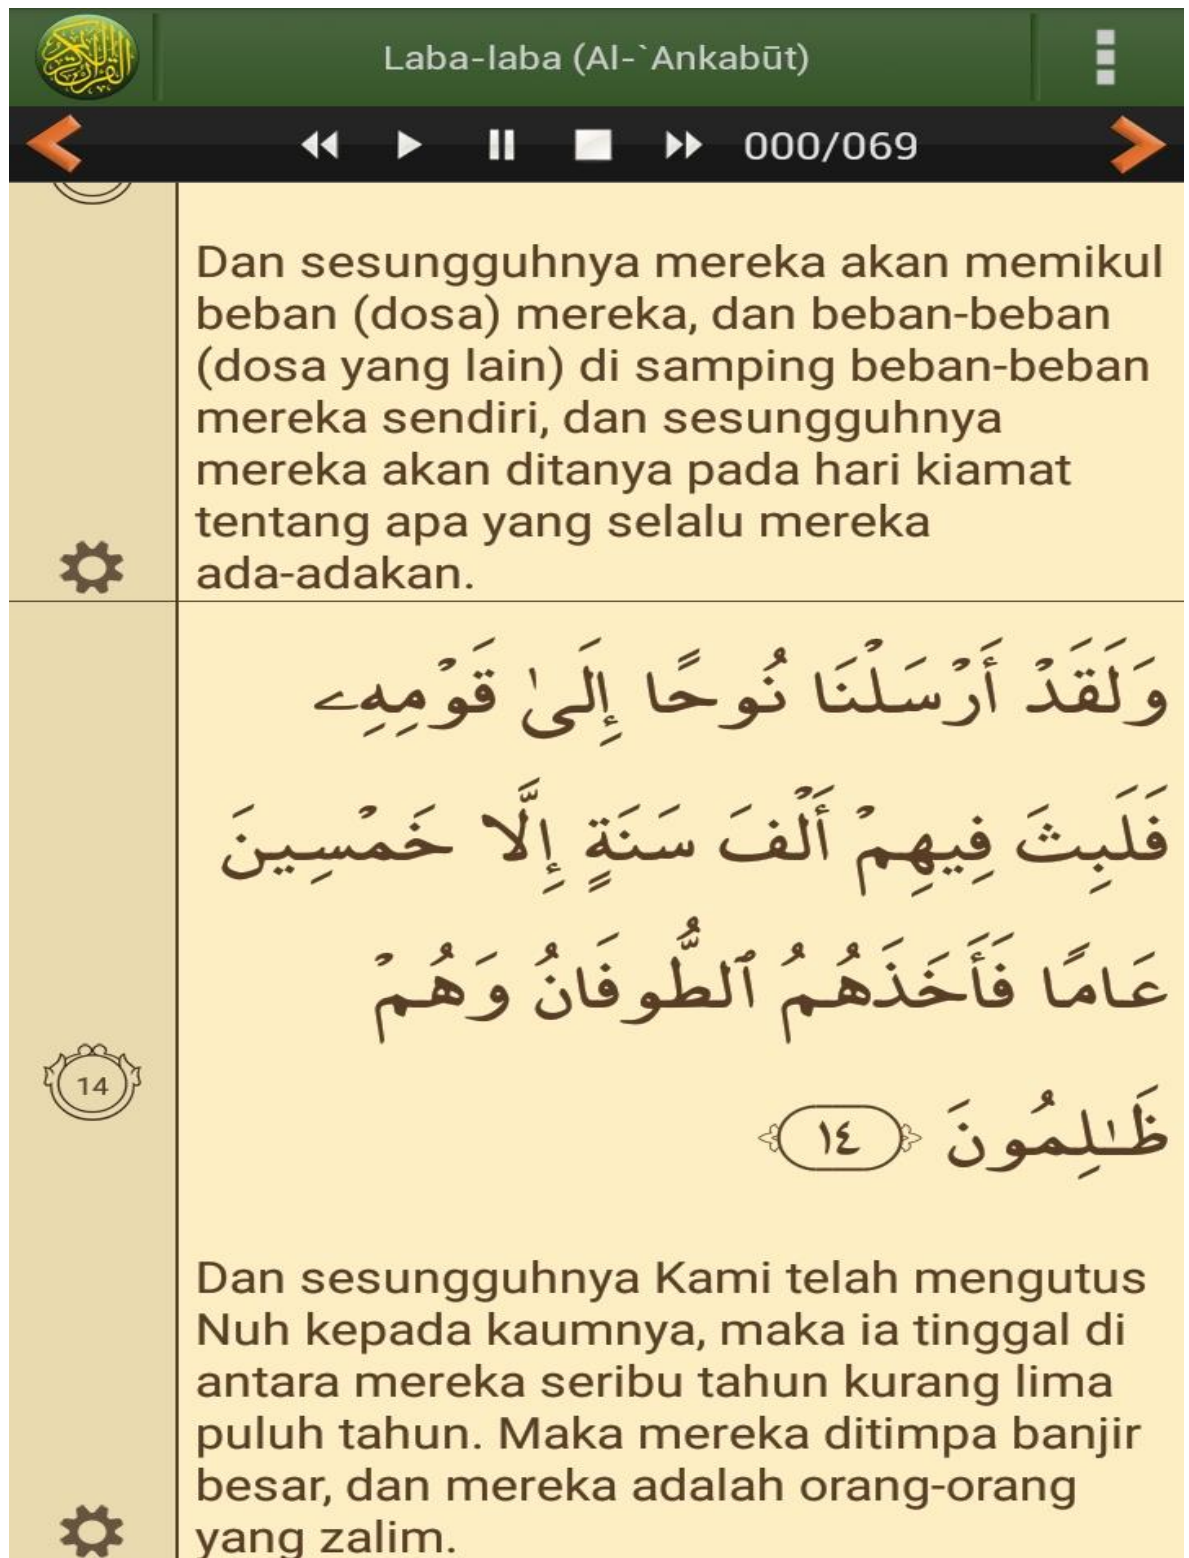 Laba-laba (Al-`Ankabūt)
000/069
Dan sesungguhnya mereka akan memikul
beban (dosa) mereka, dan beban-beban
(dosa yang lain) di samping beban-beban
mereka sendiri, dan sesungguhnya
mereka akan ditanya pada hari kiamat
tentang apa yang selalu mereka
ada-adakan.
وَلَقَدْ أَرْسَلْنَا نُوحًا إِلَىٰ قَوْمِهِۦ
فَلَبِثَ فِيهِمْ أَلْفَ سَنَةٍ إِلَّا خَمْسِينَ
عَامًا فَأَخَذَهُمُ ٱلطُّوفَانُ وَهُمْ
ظَـٰلِمُونَ ١٤
14
Dan sesungguhnya Kami telah mengutus
Nuh kepada kaumnya, maka ia tinggal di
antara mereka seribu tahun kurang lima
puluh tahun. Maka mereka ditimpa banjir
besar, dan mereka adalah orang-orang
yang zalim.